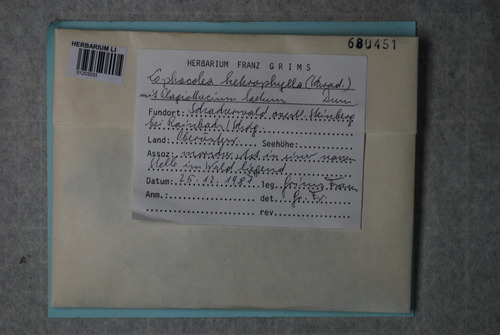 HERBARIUM LI
680451
HERBARIUM FRANZ GRIMS
Lophocolea heterophylla (Schrad.)
mit Plagiothecium laetum Dum.
Fundort:
bei Rainbach
Land: Oberösterr. Seehöhe:
Assoz: morscher Ast in einer nassen
Stelle im Wald liegend
Datum: 25.12.1987 leg. Grims Franz
Anm.: det. Gr. Fr.
rev.